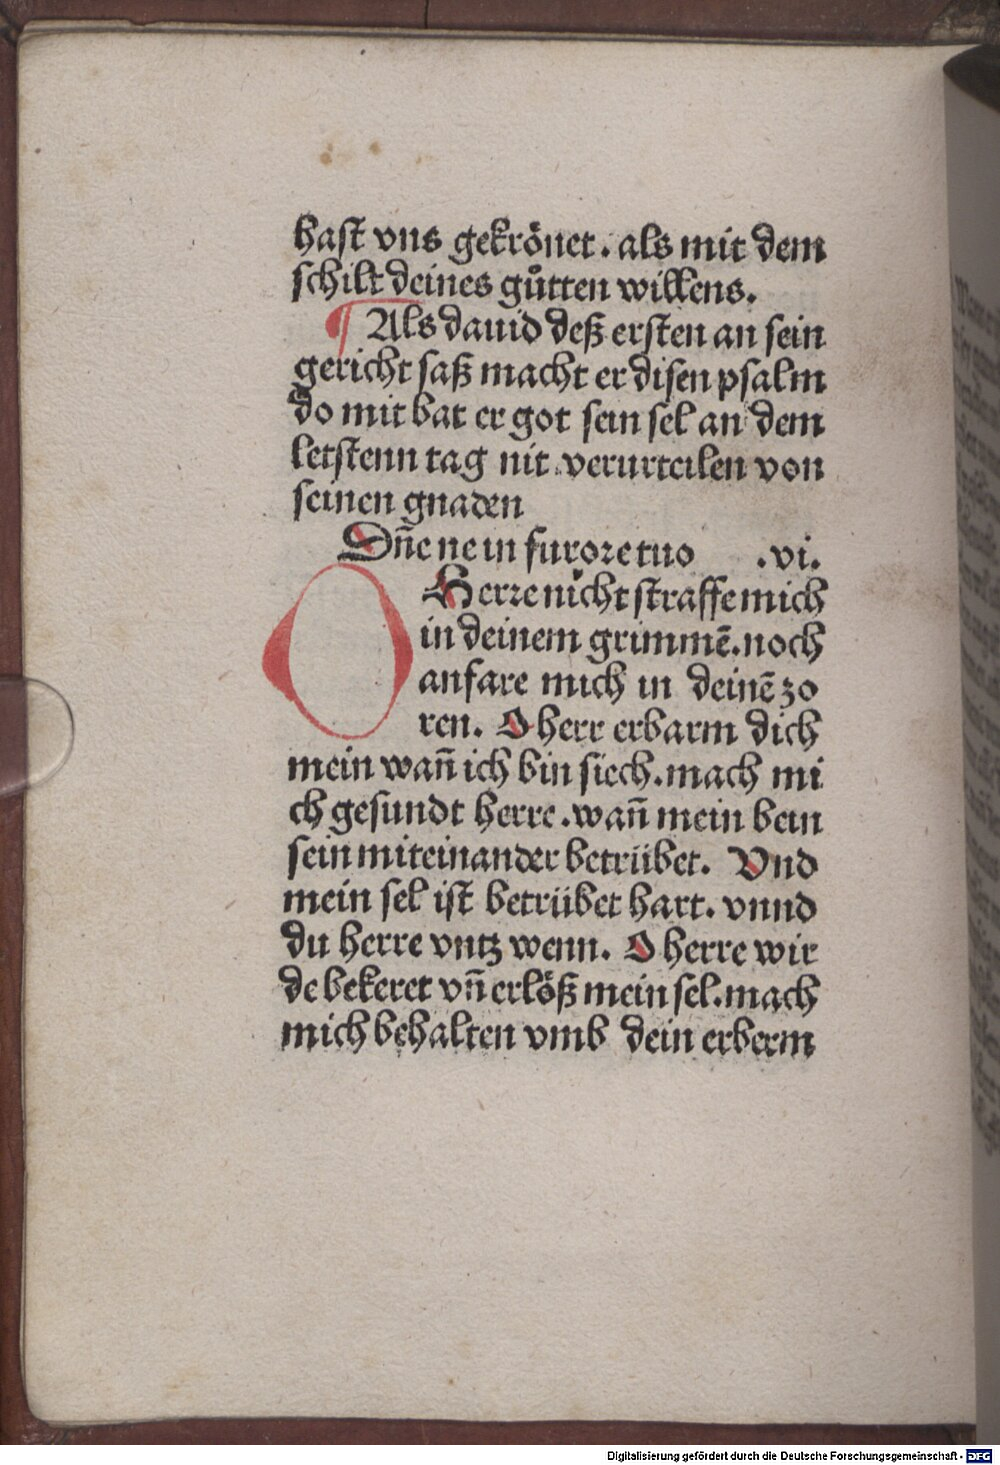 hast vns gekrönet. als mit dem
schilt deines gůtten willens.
¶ Als dauid deß ersten an sein
gericht saß macht er disen psalm
do mit bat er got sein sel an dem
letstenn tag nit verurteilen von
seinen gnaden
Dñe ne in furore tuo .vi.
O Herre nicht straffe mich
in deinem grimmē. noch
anfare mich in deinē zo
ren. O herr erbarm dich
mein wañ ich bin siech. mach mi
ch gesundt herre. wañ mein bein
sein miteinander betrübet. Vnd
mein sel ist betrübet hart. vnnd
du herre vntz wenn. O herre wir
de bekeret vñ erlöß mein sel. mach
mich behalten vmb dein erberm
Digitalisierung gefördert durch die Deutsche Forschungsgemeinschaft - DFG